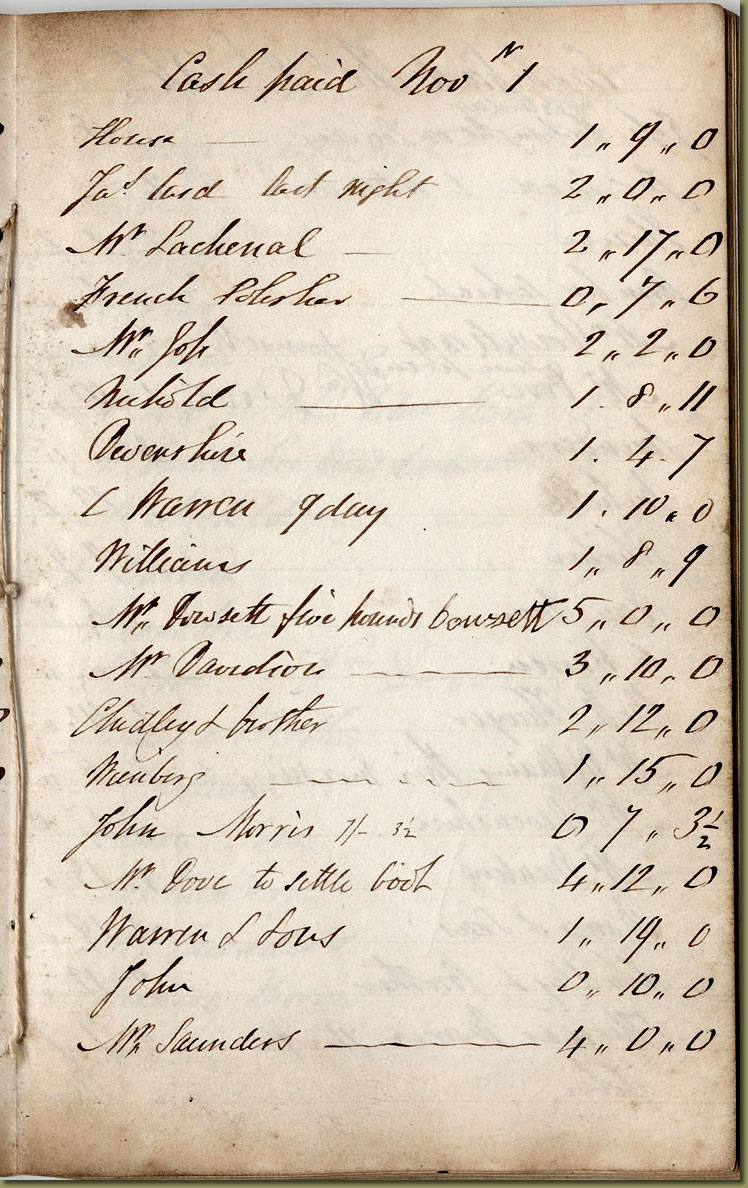 Cash paid Nov r 1
House — 1 „ 9 „ 0
Jas last night 2 „ 0 „ 0
Mr Lachenal — 2 „ 17 „ 0
French Polisher — 0 „ 7 „ 6
Mr 2 „ 2 „ 0
Nickold — 1 . 8 „ 11
Devonshire 1 . 4 . 7
C Warren 9 day 1 . 10 „ 0
Williams 1 „ 8 „ 9
Mr Dowsett five pounds bowsett 5 „ 0 „ 0
Mr Davidson — 3 „ 10 „ 0
Chidley & brother 2 „ 12 „ 0
1 „ 15 „ 0
John Morris 7/- 3½ 0 7 „ 3½
Mr Dove to settle book 4 „ 12 „ 0
Warren & Sons 1 „ 19 „ 0
John 0 „ 10 „ 0
Mr Saunders — 4 „ 0 „ 0